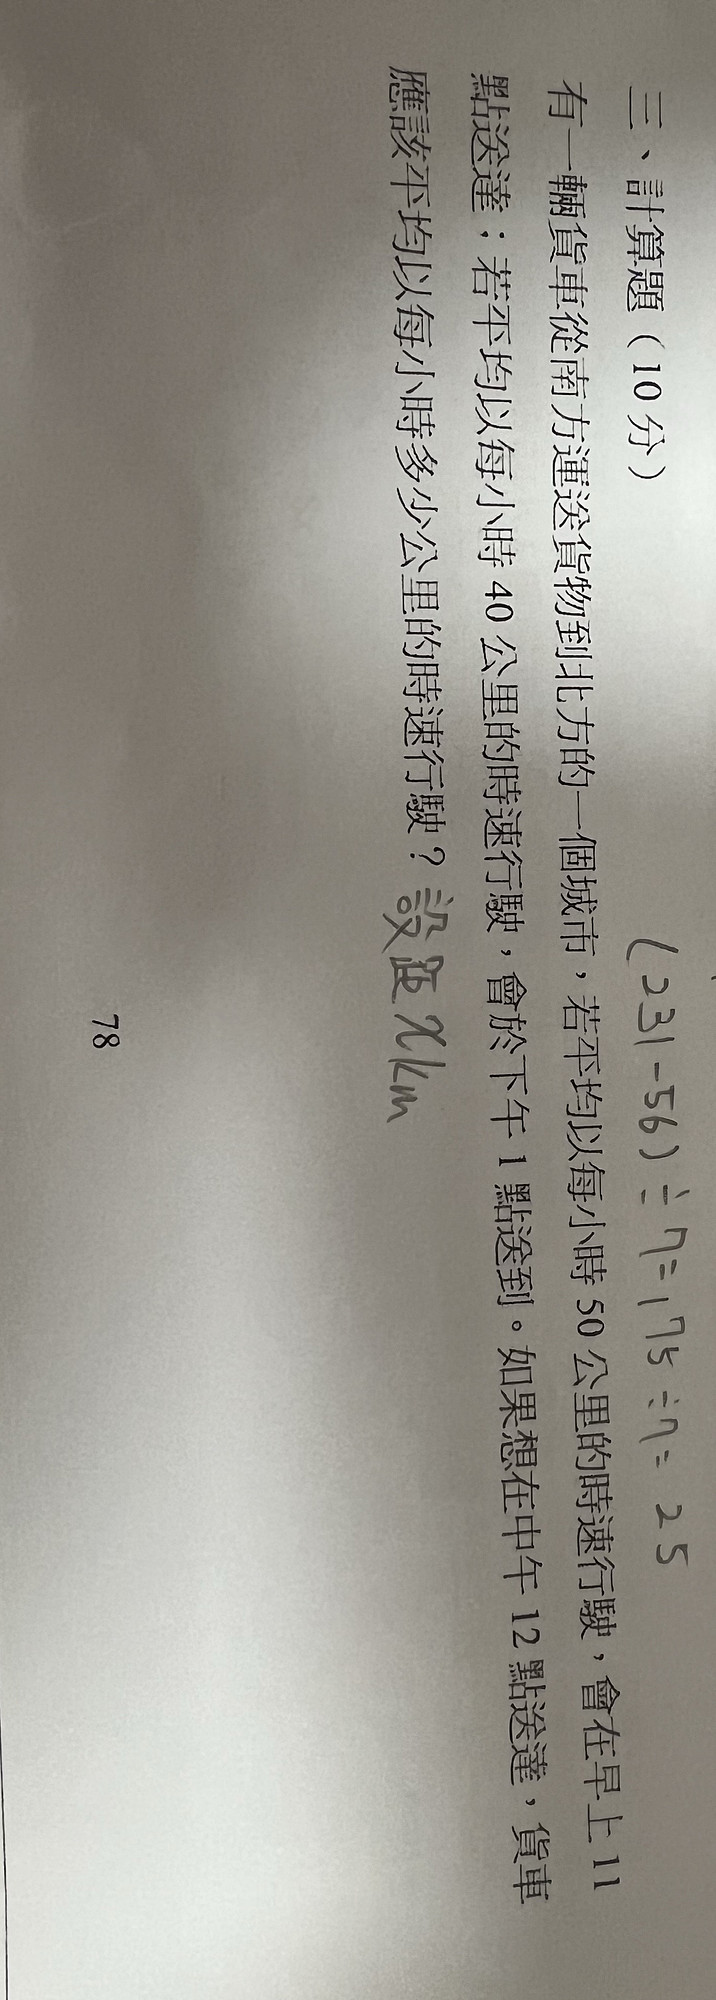 (231-56)÷7=175÷7=25
三、計算題（10 分）
有一輛貨車從南方運送貨物到北方的一個城市，若平均以每小時 50 公里的時速行駛，會在早上 11
點送達；若平均以每小時 40 公里的時速行駛，會於下午 1 點送到。如果想在中午 12 點送達，貨車
應該平均以每小時多少公里的時速行駛？設距 x km
78